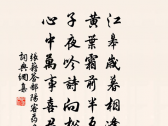 江皋歲暮相逢
黃葉霜前半
子夜吟詩向松
心中萬事喜
張籍答鄱陽客藥名
詞典網集